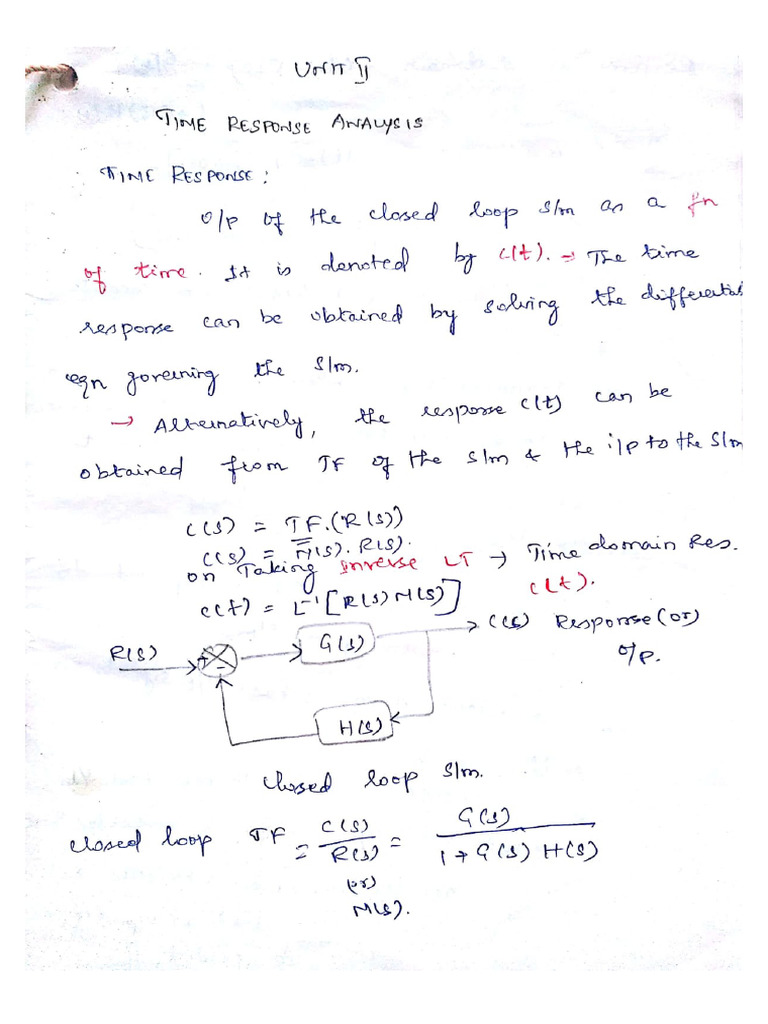 UNIT II
TIME RESPONSE ANALYSIS
TIME RESPONSE:
O/P of the closed loop S/m as a fn
of time. It is denoted by c(t). → The time
response can be obtained by solving the differential
eqn governing the S/m.
→ Alternatively, the response c(t) can be
obtained from TF of the S/m & the i/p to the S/m
C(s) = TF.(R(s))
C(s) = M(s). R(s).
on Taking inverse LT → Time domain Res.
c(t).
c(t) = L⁻¹[R(s) M(s)]
C(s) Response (or)
O/P.
R(s)
+
-
G(s)
H(s)
closed loop S/m.
closed loop TF = C(s)/R(s) = G(s)/1+G(s) H(s)
(or)
M(s).